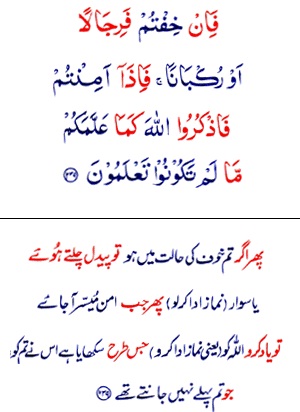 فَاِنْ خِفْتُمْ فَرِجَالًا
اَوْ رُكْبَانًا ۚ فَاِذَآ اَمِنْتُمْ
فَاذْكُرُوا اللّٰهَ كَمَا عَلَّمَكُمْ
مَّا لَمْ تَكُوْنُوْا تَعْلَمُوْنَ ﴿۲۳۹﴾
پھر اگر تم خوف کی حالت میں ہو تو پیدل چلتے ہوئے
یا سوار (نماز ادا کر لو) پھر جب امن میسّر آ جائے
تو یاد کرو اللہ کو (یعنی نماز ادا کرو) جس طرح سکھایا ہے اس نے تم کو
جو تم پہلے نہیں جانتے تھے ﴿۲۳۹﴾